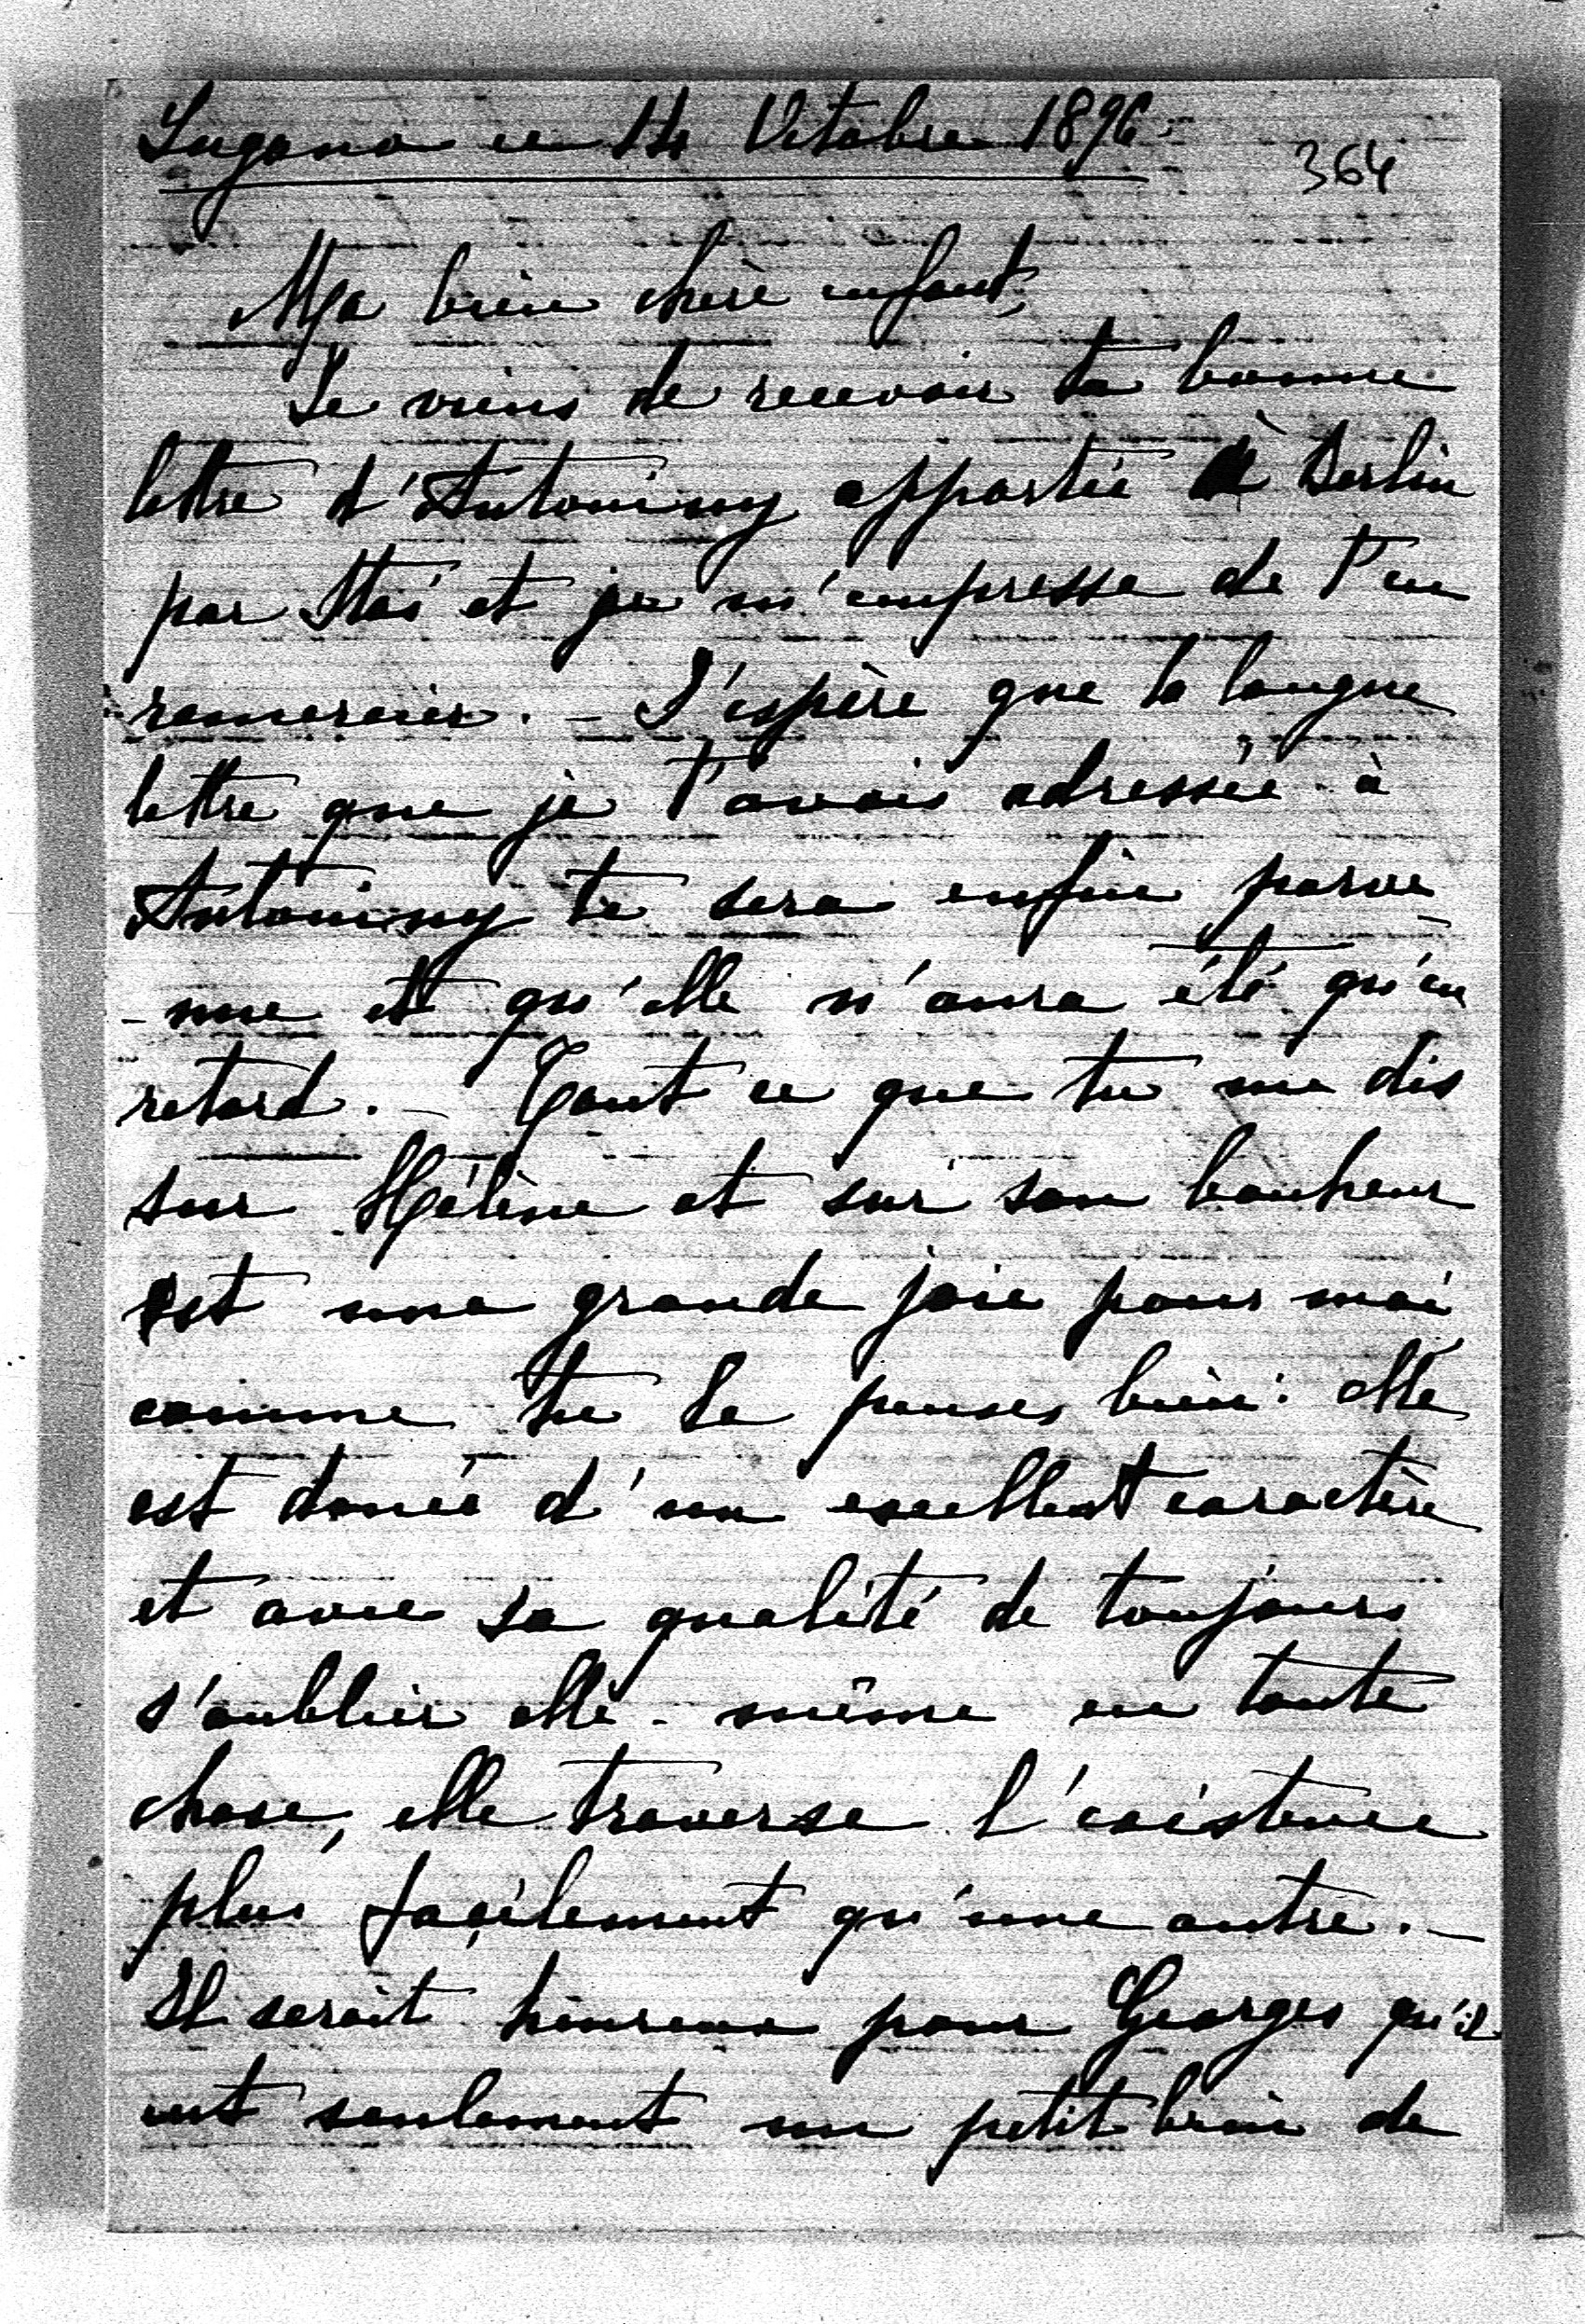 Lugano ce 14 Octobre 1896.
364
Ma bien chère enfant,
Je viens de recevoir ta bonne
lettre d'Antoniny apportée à Berlin
par Stas et je m'empresse de t'en
remercier. _ J'espère que la longue
lettre que je t'avais adressée à
Antoniny te sera enfin parve_
_nue et qu'elle n'aura été qu'en
retard. _ Tout ce que tu me dis
sur Hélène et sur son bonheur
est une grande joie pour moi
comme tu le penses bien: elle
est douée d'un excellent caractère
et avec sa qualité de toujours
s'oublier elle-même en toute
chose, elle traverse l'existence
plus facilement qu'une autre. _
Il serait heureux pour Georges qu'il
eut seulement un petit brin de